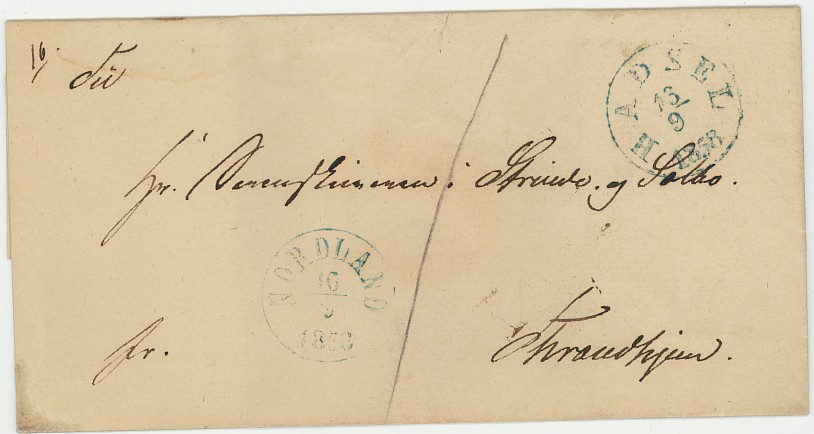 16.
Til
HADSEL
13/9
1858
Hr. Sorenskriveren i Strinde og Selbo.
NORDLAND
16
9
1858
fr.
Throndhjem.